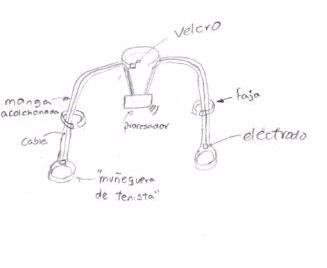 velcro
manga
acolchonada
faja
procesador
cable
eléctrodo
"muñequera
de tenista"